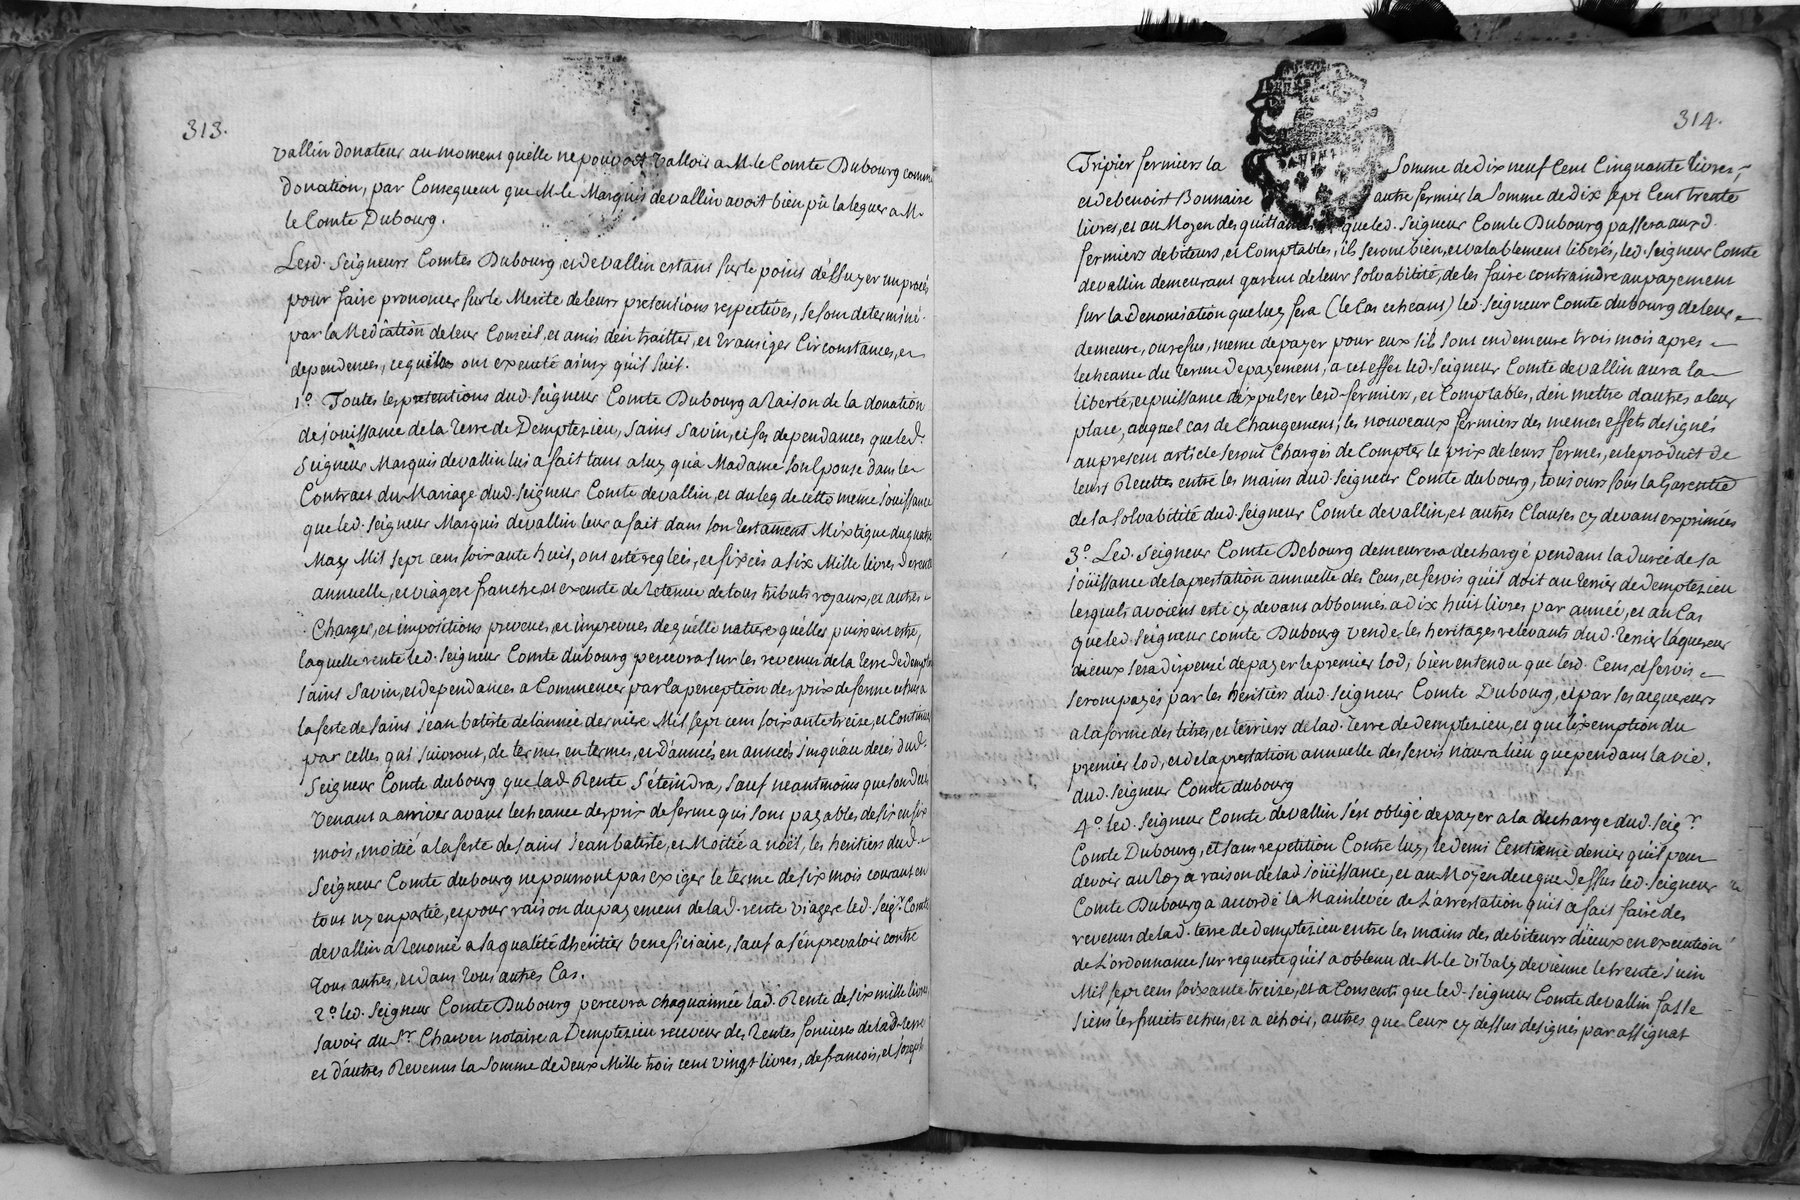 313.
vallin donateur au moment quélle ne pouvoit valloir a M. le Comte Dubourg comme
donation, par Consequent que M. le Marquis de vallin avoit bien pû la leguer a M.
le Comte Dubourg.
Lesd. Seigneurs Comtes Dubourg, et de vallin estant sur le point d'éssuyer un procés
pour faire prononcer sur le Merite de leurs pretentions respectives, se sont determiné
par la Mediation de leur Conseil, et amis d'en traitter, et transiger Circonstances, et
dependences, ce quils ont executé ainsy qu'il suit.
1.° Toutes les pretentions dud. Seigneur Comte Dubourg a Raison de la donation
de jouissance de la Terre de Demptezieu, Saint Savin, et ses dependances que led.
Seigneur Marquis de vallin lui a fait tant a luy qu'a Madame son Epouse dans le
Contract du Mariage dud. Seigneur Comte de vallin, et du leg de cette meme jouissance
que led. Seigneur Marquis de vallin leur a fait dans son testament Mixtique du quatre
May Mil sept cent soixante huit, ont eté regleés, et fixeés a six Mille livres de rente
annuelle, et viagere franche, et exempte de Retenue de tous tributs royaux, et autres
Charges, et impositions prevues, et imprevues de quélle nature quélles puissent estre,
laquelle rente led. Seigneur Comte dubourg percevra sur les revenus de la Terre de demptezieu
saint Savin, et dependances a Commencer par la perception des prix de ferme echus a
la feste de saint jean batiste de l'année derniere Mil sept cent soixante treize, et Continuer
par celles qui suivront, de termes en termes, et D'anneés en anneés jusqu'au decés dud.
Seigneur Comte dubourg que lad. Rente s'éteindra, sauf neantmoins que son decés
venant a arriver avant l'echeance des prix de ferme qui sont payables de six en six
mois, moitié a la feste de saint jean batiste, et Moitié a noël, les heritiers dud.
Seigneur Comte dubourg ne pourront pas exiger le terme de six mois courant en
tout ny en partie, et pour raison du payement de lad. rente viagere led. Seig.r Comte
de vallin a Renoncé a la qualité d'heritier beneficiaire, sauf a s'en prevaloir contre
tous autres, et dans tous autres Cas.
2.° led. Seigneur Comte Dubourg percevra chaque année lad. Rente de six mille livres
savoir du S.r Charvet notaire a Demptezieu receveur des Rentes foncieres de lad. terre
et d'autres Revenus la Somme de deux Mille trois cent vingt livres, de francois, et joseph
314.
Tripier fermiers la Somme de Dix neuf Cent Cinquante livres,
et de benoist Bonnaire autre fermier la Somme de Dix sept Cent trente
livres, et au Moyen des quittances que led. Seigneur Comte Dubourg passera auxd.
fermiers debiteurs, et Comptables, ils seront bien, et valablement liberés, led. Seigneur Comte
de vallin demeurant garent de leur solvabilité, de les faire contraindre au payement
sur la Denonciation que luy fera (le Cas echeant) led. Seigneur Comte dubourg de leur
demeure, ou refus, meme de payer pour eux s'ils sont en demeure trois mois apres
l'echeance du terme de payement, a cet effet led. Seigneur Comte de vallin aura la
liberté, et puissance d'éxpulser lesd. fermiers, et Comptables, d'en mettre d'autres a leur
place, auquel cas de Changement, les nouveaux fermiers des memes effets designés
au present article seront Chargés de Compter le prix de leurs fermes, et le produit de
leurs Recettes entre les mains dud. Seigneur Comte dubourg, toujours sous la Garentie
de la solvabilité dud. Seigneur Comte de vallin, et autres Clauses cy devant exprimées
3.° Led. Seigneur Comte Debourg demeurera dechargé pendant la durée de sa
joüissance de la prestation annuelle des Cens, et servis qu'il doit au terrier de Demptezieu
lesquels avoient eté cy devant abbonnés a dix huit livres par année, et au Cas
que led. Seigneur comte Dubourg vende les heritages relevants dud. terrier l'aquereur
diceux sera dispensé de payer le premier lod; bien entendu que lesd. Cens, et servis
seront payés par les heritiers dud. Seigneur Comte Dubourg, et par ses aquereurs
a la forme des titres, et terriers de lad. terre de demptezieu, et que l'éxemption du
premier lod, et de la prestation annuelle des servis n'aura lieu que pendant la vie
dud. Seigneur Comte dubourg
4.° led. Seigneur Comte de vallin s'est obligé de payer a la decharge dud. Seig.r
Comte Dubourg, et sans repetition Contre luy, le demi Centieme denier qu'il peut
devoir au Roy a raison de lad. joüissance, et au Moyen de ce que Dessus led. Seigneur
Comte Dubourg a accordé la Mainlevée de L'arrestation qu'il a fait faire des
revenus de lad. terre de demptezieu entre les mains des debiteurs d'iceux en execution
de L'ordonnance sur requeste qu'il a obtenu de M. le vibaly de vienne le trente juin
Mil sept cent soixante treize, et a Consenti que led. Seigneur Comte de vallin fasse
siens les fruits echus, et a echoir, autres que Ceux cy dessus designés par assignat